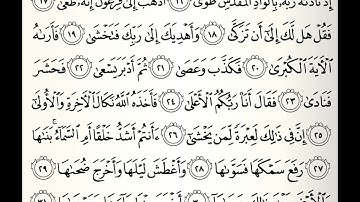 إِذْ نَادَىٰهُ رَبُّهُۥ بِٱلْوَادِ ٱلْمُقَدَّسِ طُوًى ١٦ ٱذْهَبْ إِلَىٰ فِرْعَوْنَ إِنَّهُۥ طَغَىٰ ١٧
فَقُلْ هَل لَّكَ إِلَىٰٓ أَن تَزَكَّىٰ ١٨ وَأَهْدِيَكَ إِلَىٰ رَبِّكَ فَتَخْشَىٰ ١٩ فَأَرَىٰهُ
ٱلْأٓيَةَ ٱلْكُبْرَىٰ ٢٠ فَكَذَّبَ وَعَصَىٰ ٢١ ثُمَّ أَدْبَرَ يَسْعَىٰ ٢٢ فَحَشَرَ
فَنَادَىٰ ٢٣ فَقَالَ أَنَا۠ رَبُّكُمُ ٱلْأَعْلَىٰ ٢٤ فَأَخَذَهُ ٱللَّهُ نَكَالَ ٱلْأٓخِرَةِ وَٱلْأُولَىٰٓ
٢٥ إِنَّ فِى ذَٰلِكَ لَعِبْرَةً لِّمَن يَخْشَىٰٓ ٢٦ ءَأَنتُمْ أَشَدُّ خَلْقًا أَمِ ٱلسَّمَآءُ ۚ بَنَىٰهَا
٢٧ رَفَعَ سَمْكَهَا فَسَوَّىٰهَا ٢٨ وَأَغْطَشَ لَيْلَهَا وَأَخْرَجَ ضُحَىٰهَا ٢٩